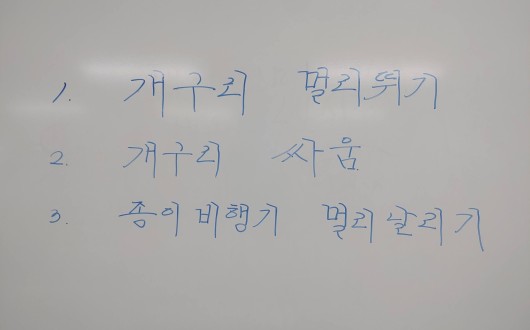 1. 개구리 멀리뛰기
2. 개구리 싸움
3. 종이비행기 멀리날리기